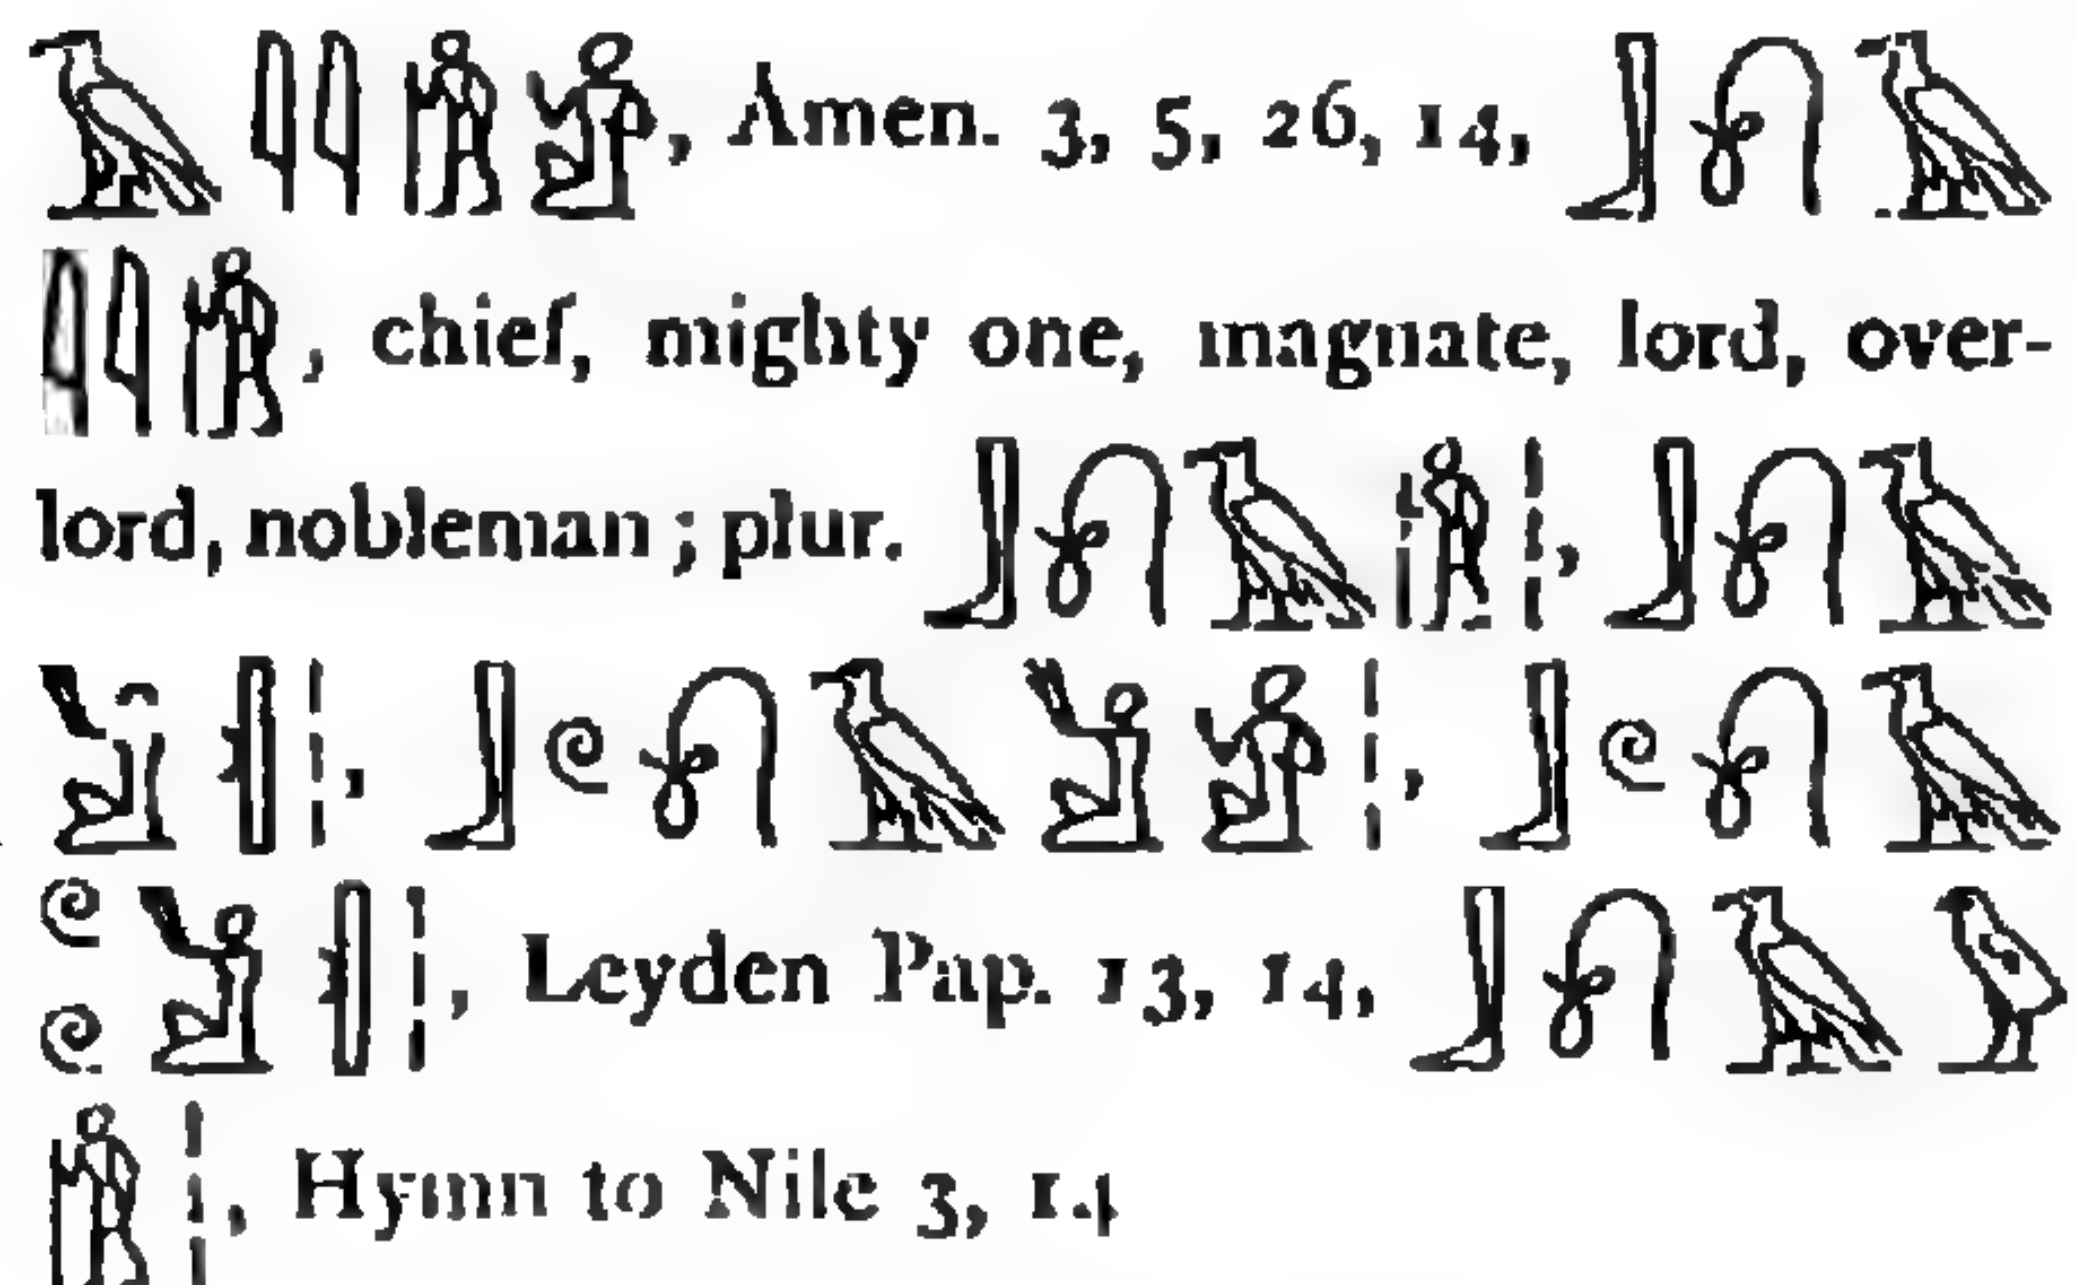 𓄿𓇋𓇋𓀙𓀀, Amen. 3, 5, 26, 14, 𓃀𓍯𓄿
𓇋𓇋𓀙, chief, mighty one, magnate, lord, over-
lord, nobleman ; plur. 𓃀𓍯𓄿𓀙𓏪, 𓃀𓍯𓄿
𓀃𓏜𓏪, 𓃀𓏲𓍯𓄿𓀃𓀀𓏪, 𓃀𓏲𓍯𓄿
𓏲𓏲𓀃𓏜𓏪, Leyden Pap. 13, 14, 𓃀𓍯𓄿𓅱
𓀙𓏪, Hymn to Nile 3, 14